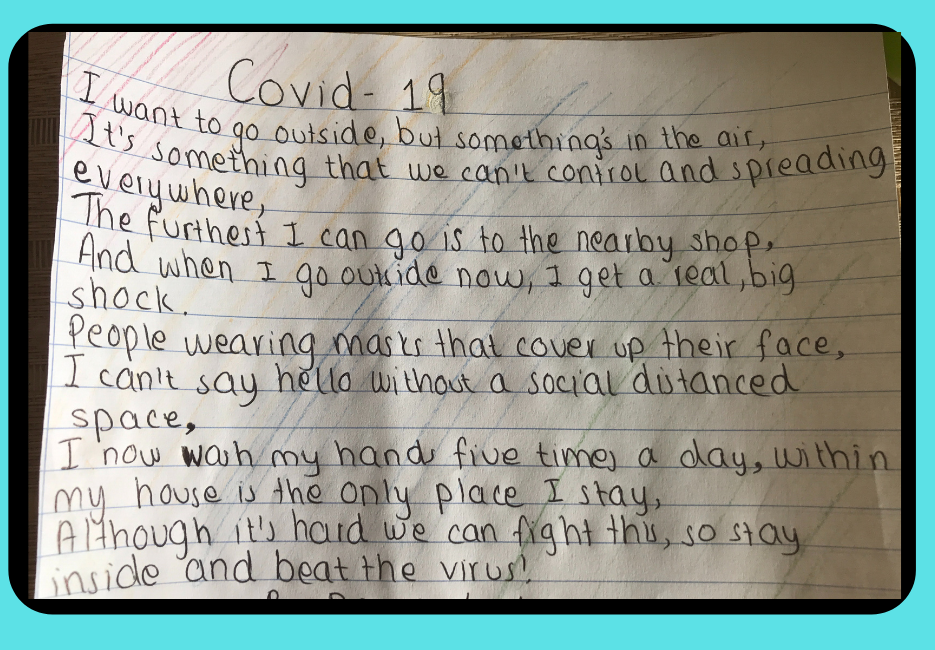 Covid- 19
I want to go outside, but something's in the air,
It's something that we can't control and spreading
everywhere,
The furthest I can go is to the nearby shop,
And when I go outside now, I get a real, big
shock.
People wearing masks that cover up their face,
I can't say hello without a social distanced
space,
I now wash my hands five times a day, within
my house is the only place I stay,
Although it's hard we can fight this, so stay
inside and beat the virus!